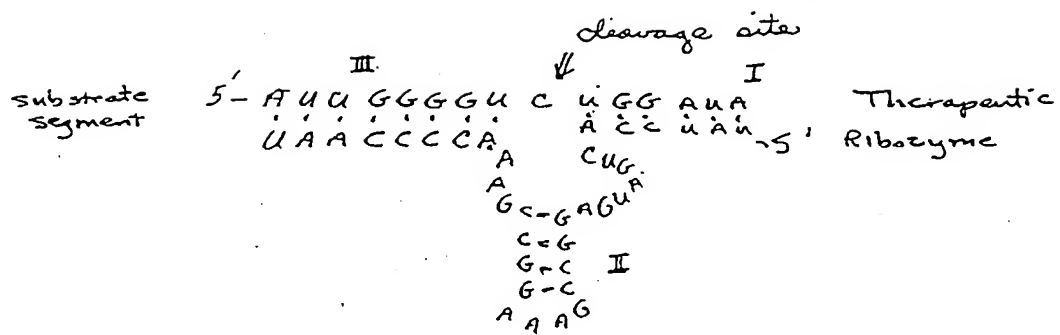 cleavage site
III I
substrate 5'- A U U G G G G U C U G G A U A Therapeutic
segment U A A C C C C A A C C U A U -5' Ribozyme
A C U G
A A
G C - G A G U
C = G
G - C II
G - C
A A A G